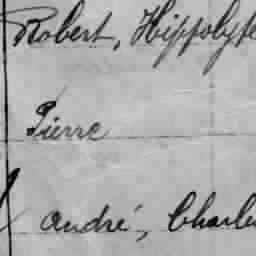 Robert, Hippolyte
Pierre
André, Charles